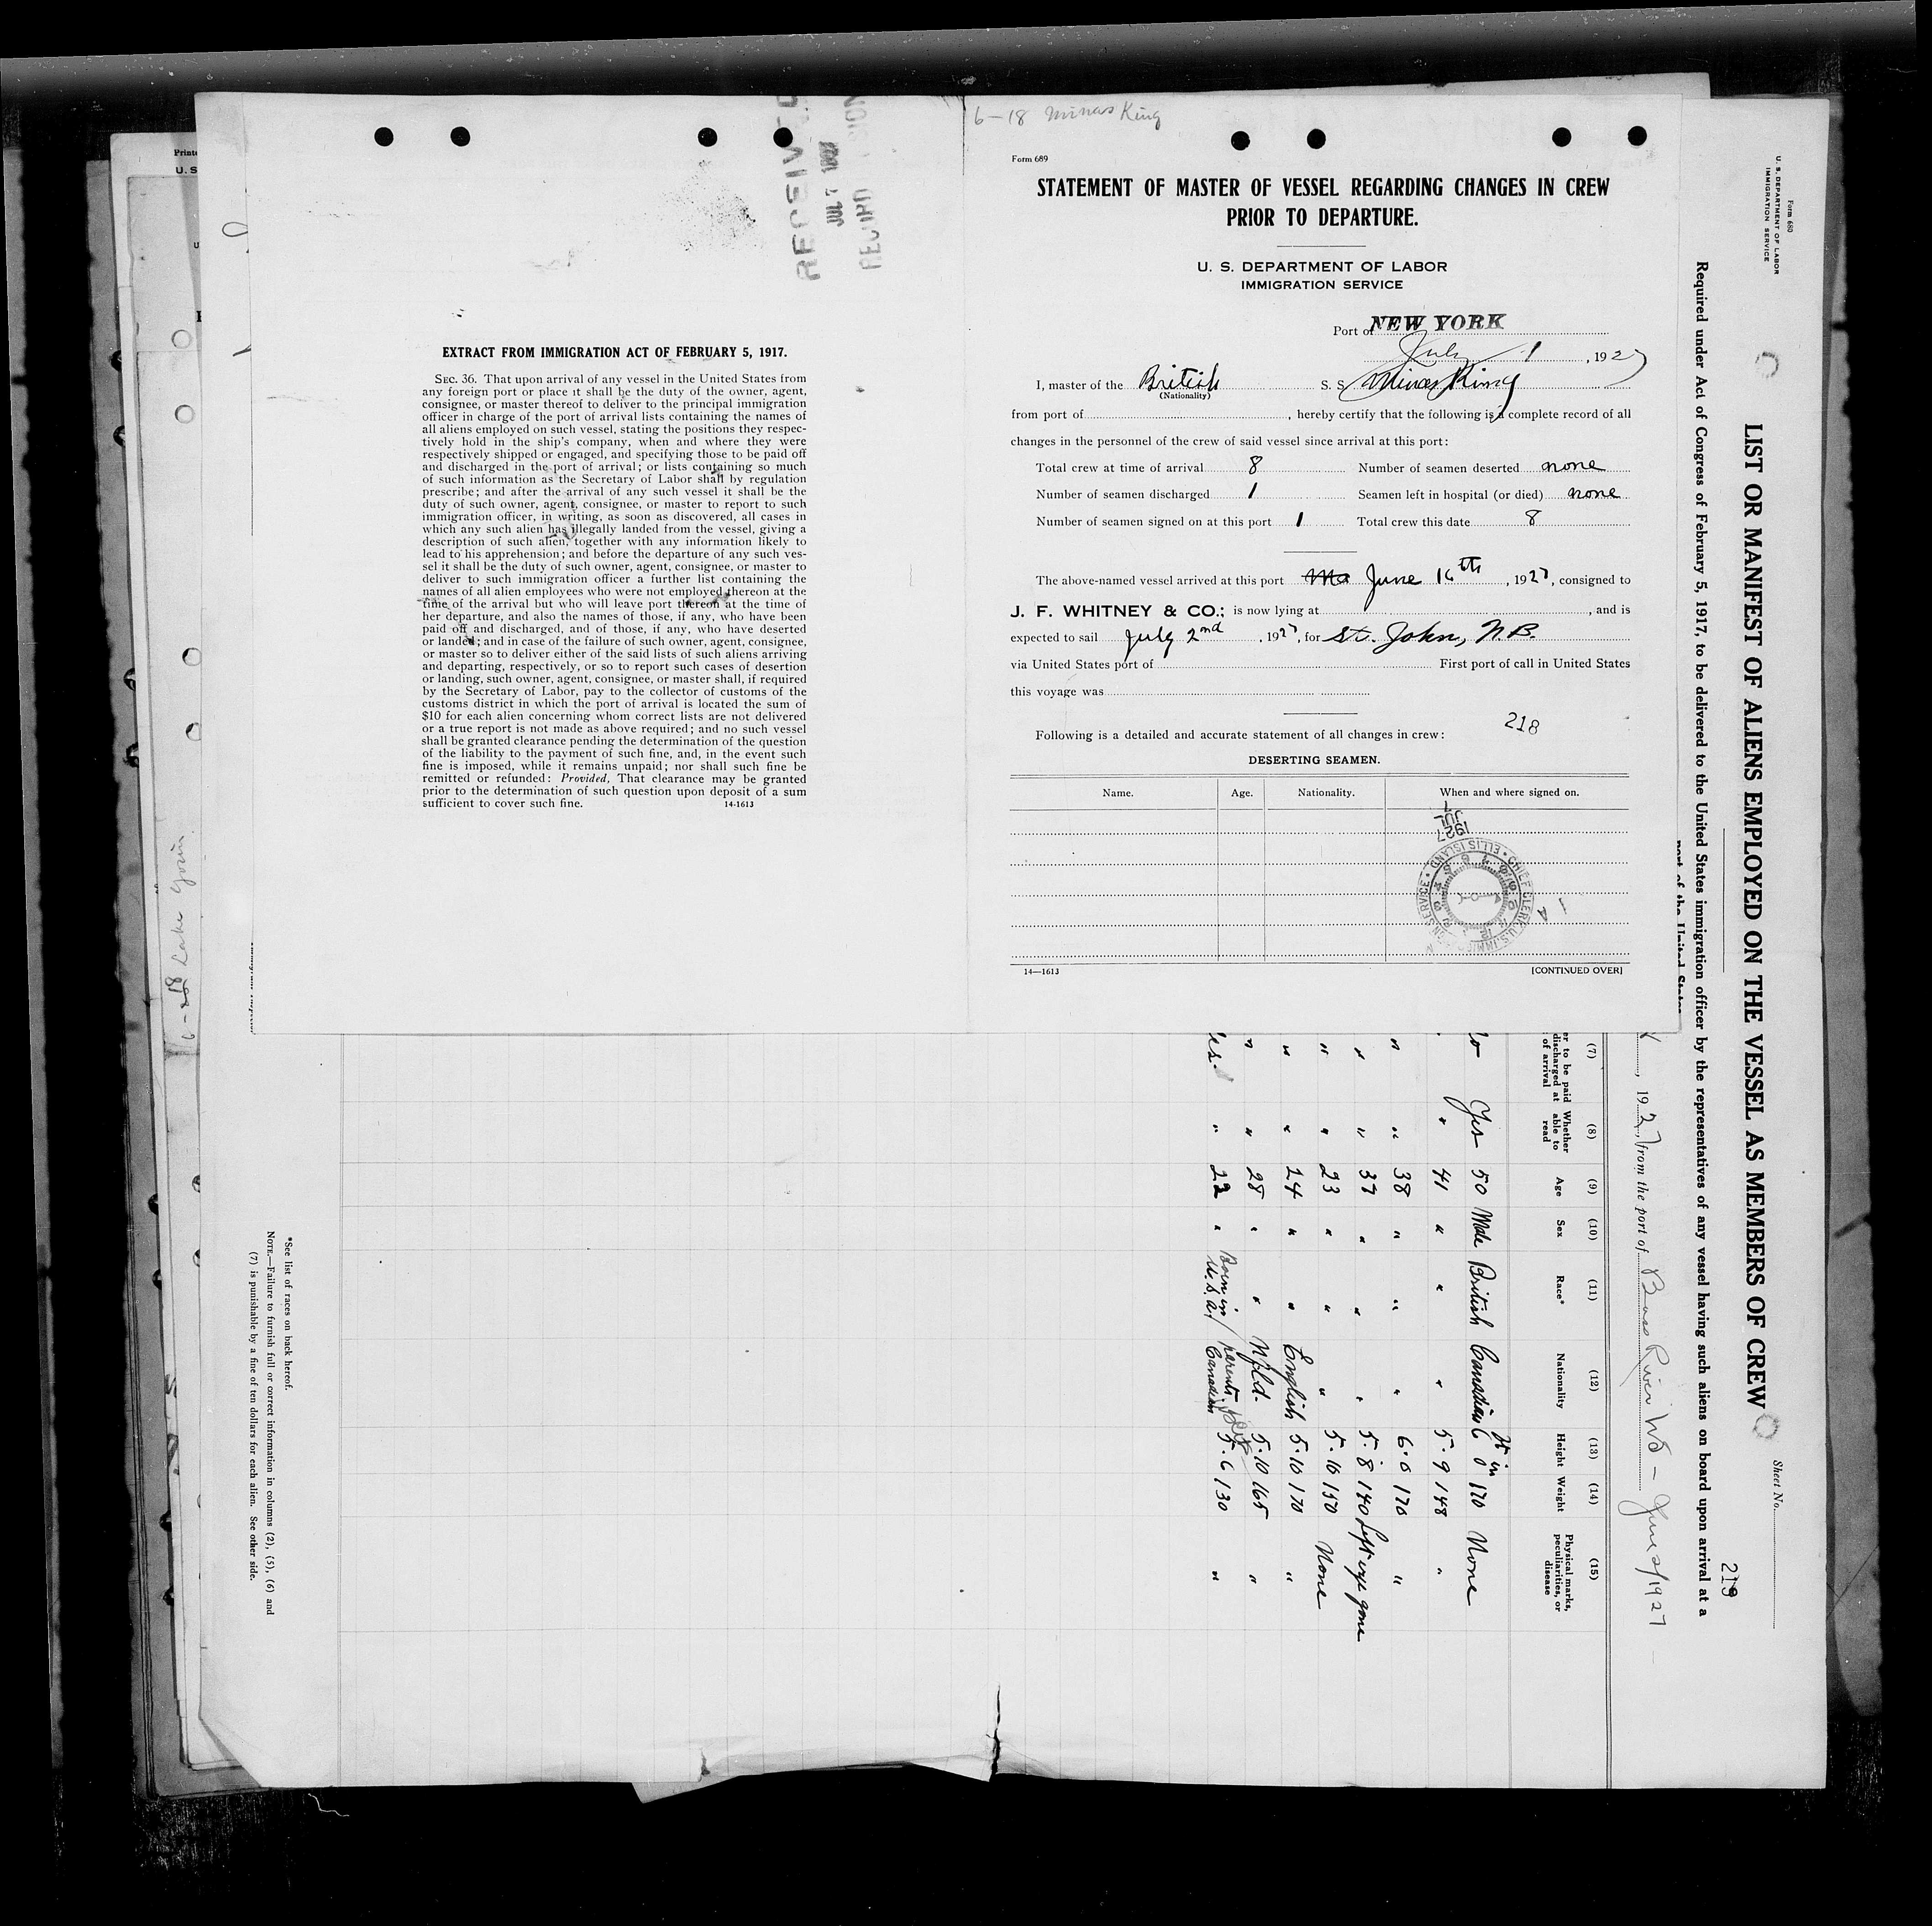 6-18 Minas King
RECEIVED
Form 689
STATEMENT OF MASTER OF VESSEL REGARDING CHANGES IN CREW
PRIOR TO DEPARTURE.
U. S. DEPARTMENT OF LABOR
IMMIGRATION SERVICE
Port of NEW YORK
July 1, 1927
I, master of the British S. S. Minas King
(Nationality)
from port of, hereby certify that the following is a complete record of all
changes in the personnel of the crew of said vessel since arrival at this port:
Total crew at time of arrival 8 Number of seamen deserted none
Number of seamen discharged 1 Seamen left in hospital (or died) none
Number of seamen signed on at this port 1 Total crew this date 8
The above-named vessel arrived at this port June 16th, 1927, consigned to
J. F. WHITNEY & CO.; is now lying at, and is
expected to sail July 2nd, 1927, for St. John, N.B.
via United States port of First port of call in United States
this voyage was
218
Following is a detailed and accurate statement of all changes in crew:
DESERTING SEAMEN.
Name. Age. Nationality. When and where signed on.
JUL
1927
CHIEF CLERK, U.S. IMMIGRATION SERVICE • ELLIS ISLAND
14—1613 [CONTINUED OVER]
EXTRACT FROM IMMIGRATION ACT OF FEBRUARY 5, 1917.
SEC. 36. That upon arrival of any vessel in the United States from
any foreign port or place it shall be the duty of the owner, agent,
consignee, or master thereof to deliver to the principal immigration
officer in charge of the port of arrival lists containing the names of
all aliens employed on such vessel, stating the positions they respec-
tively hold in the ship's company, when and where they were
respectively shipped or engaged, and specifying those to be paid off
and discharged in the port of arrival; or lists containing so much
of such information as the Secretary of Labor shall by regulation
prescribe; and after the arrival of any such vessel it shall be the
duty of such owner, agent, consignee, or master to report to such
immigration officer, in writing, as soon as discovered, all cases in
which any such alien has illegally landed from the vessel, giving a
description of such alien, together with any information likely to
lead to his apprehension; and before the departure of any such ves-
sel it shall be the duty of such owner, agent, consignee, or master to
deliver to such immigration officer a further list containing the
names of all alien employees who were not employed thereon at the
time of the arrival but who will leave port thereon at the time of
her departure, and also the names of those, if any, who have been
paid off and discharged, and of those, if any, who have deserted
or landed; and in case of the failure of such owner, agent, consignee,
or master so to deliver either of the said lists of such aliens arriving
and departing, respectively, or so to report such cases of desertion
or landing, such owner, agent, consignee, or master shall, if required
by the Secretary of Labor, pay to the collector of customs of the
customs district in which the port of arrival is located the sum of
$10 for each alien concerning whom correct lists are not delivered
or a true report is not made as above required; and no such vessel
shall be granted clearance pending the determination of the question
of the liability to the payment of such fine, and, in the event such
fine is imposed, while it remains unpaid; nor shall such fine be
remitted or refunded: Provided, That clearance may be granted
prior to the determination of such question upon deposit of a sum
sufficient to cover such fine. 14-1613
Form 680
U. S. DEPARTMENT OF LABOR
IMMIGRATION SERVICE
Sheet No.
LIST OR MANIFEST OF ALIENS EMPLOYED ON THE VESSEL AS MEMBERS OF CREW
219
Required under Act of Congress of February 5, 1917, to be delivered to the United States immigration officer by the representatives of any vessel having such aliens on board upon arrival at a
port of the United States
, 1927, from the port of Bass River NS - June 2/1927
(7) (8) (9) (10) (11) (12) (13) (14) (15)
er to be paid discharged at of arrival Whether able to read Age Sex Race* Nationality Height Weight Physical marks, peculiarities, or disease
Ft in
Yes 50 Male British Canadian 6 0 170 None
" 41 " " " 5·9 148 "
" " 38 " " " 6·0 170 "
" " 37 " " " 5·8 140 Left eye gone
" " 23 " " " 5·10 150 None
" " 24 " " English 5·10 170 "
" " 28 " " Nfld. 5·10 165 "
" 22 " Born in U.S.A. / parents Canadian 5·6 130 "
*See list of races on back hereof.
NOTE.—Failure to furnish full or correct information in columns (2), (5), (6) and
(7) is punishable by a fine of ten dollars for each alien. See other side.